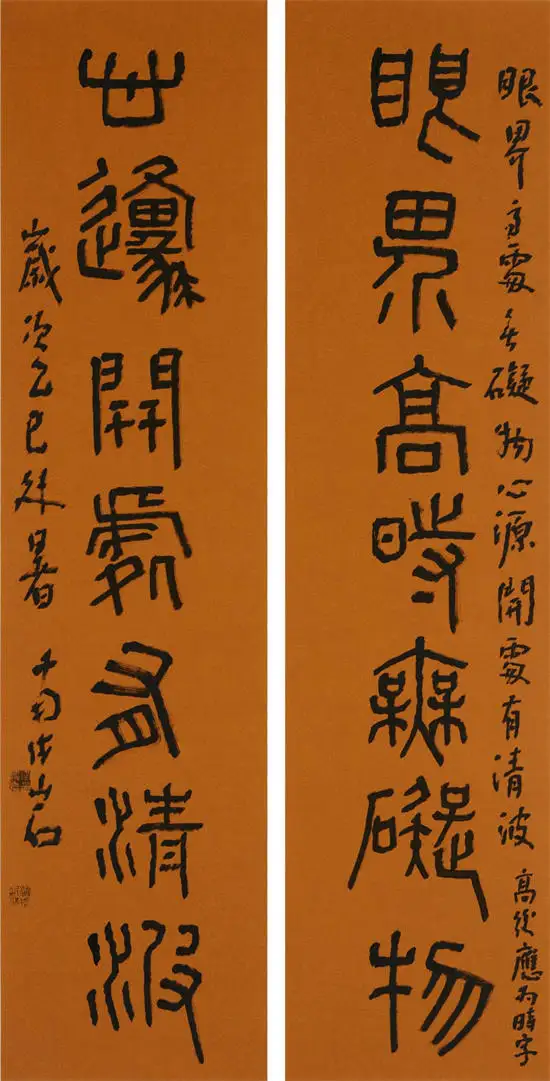 眼界高處無礙物心源開處有清波 高後應為時字
眼界高時無礙物
心邍開處有清波
歲次乙巳 暑